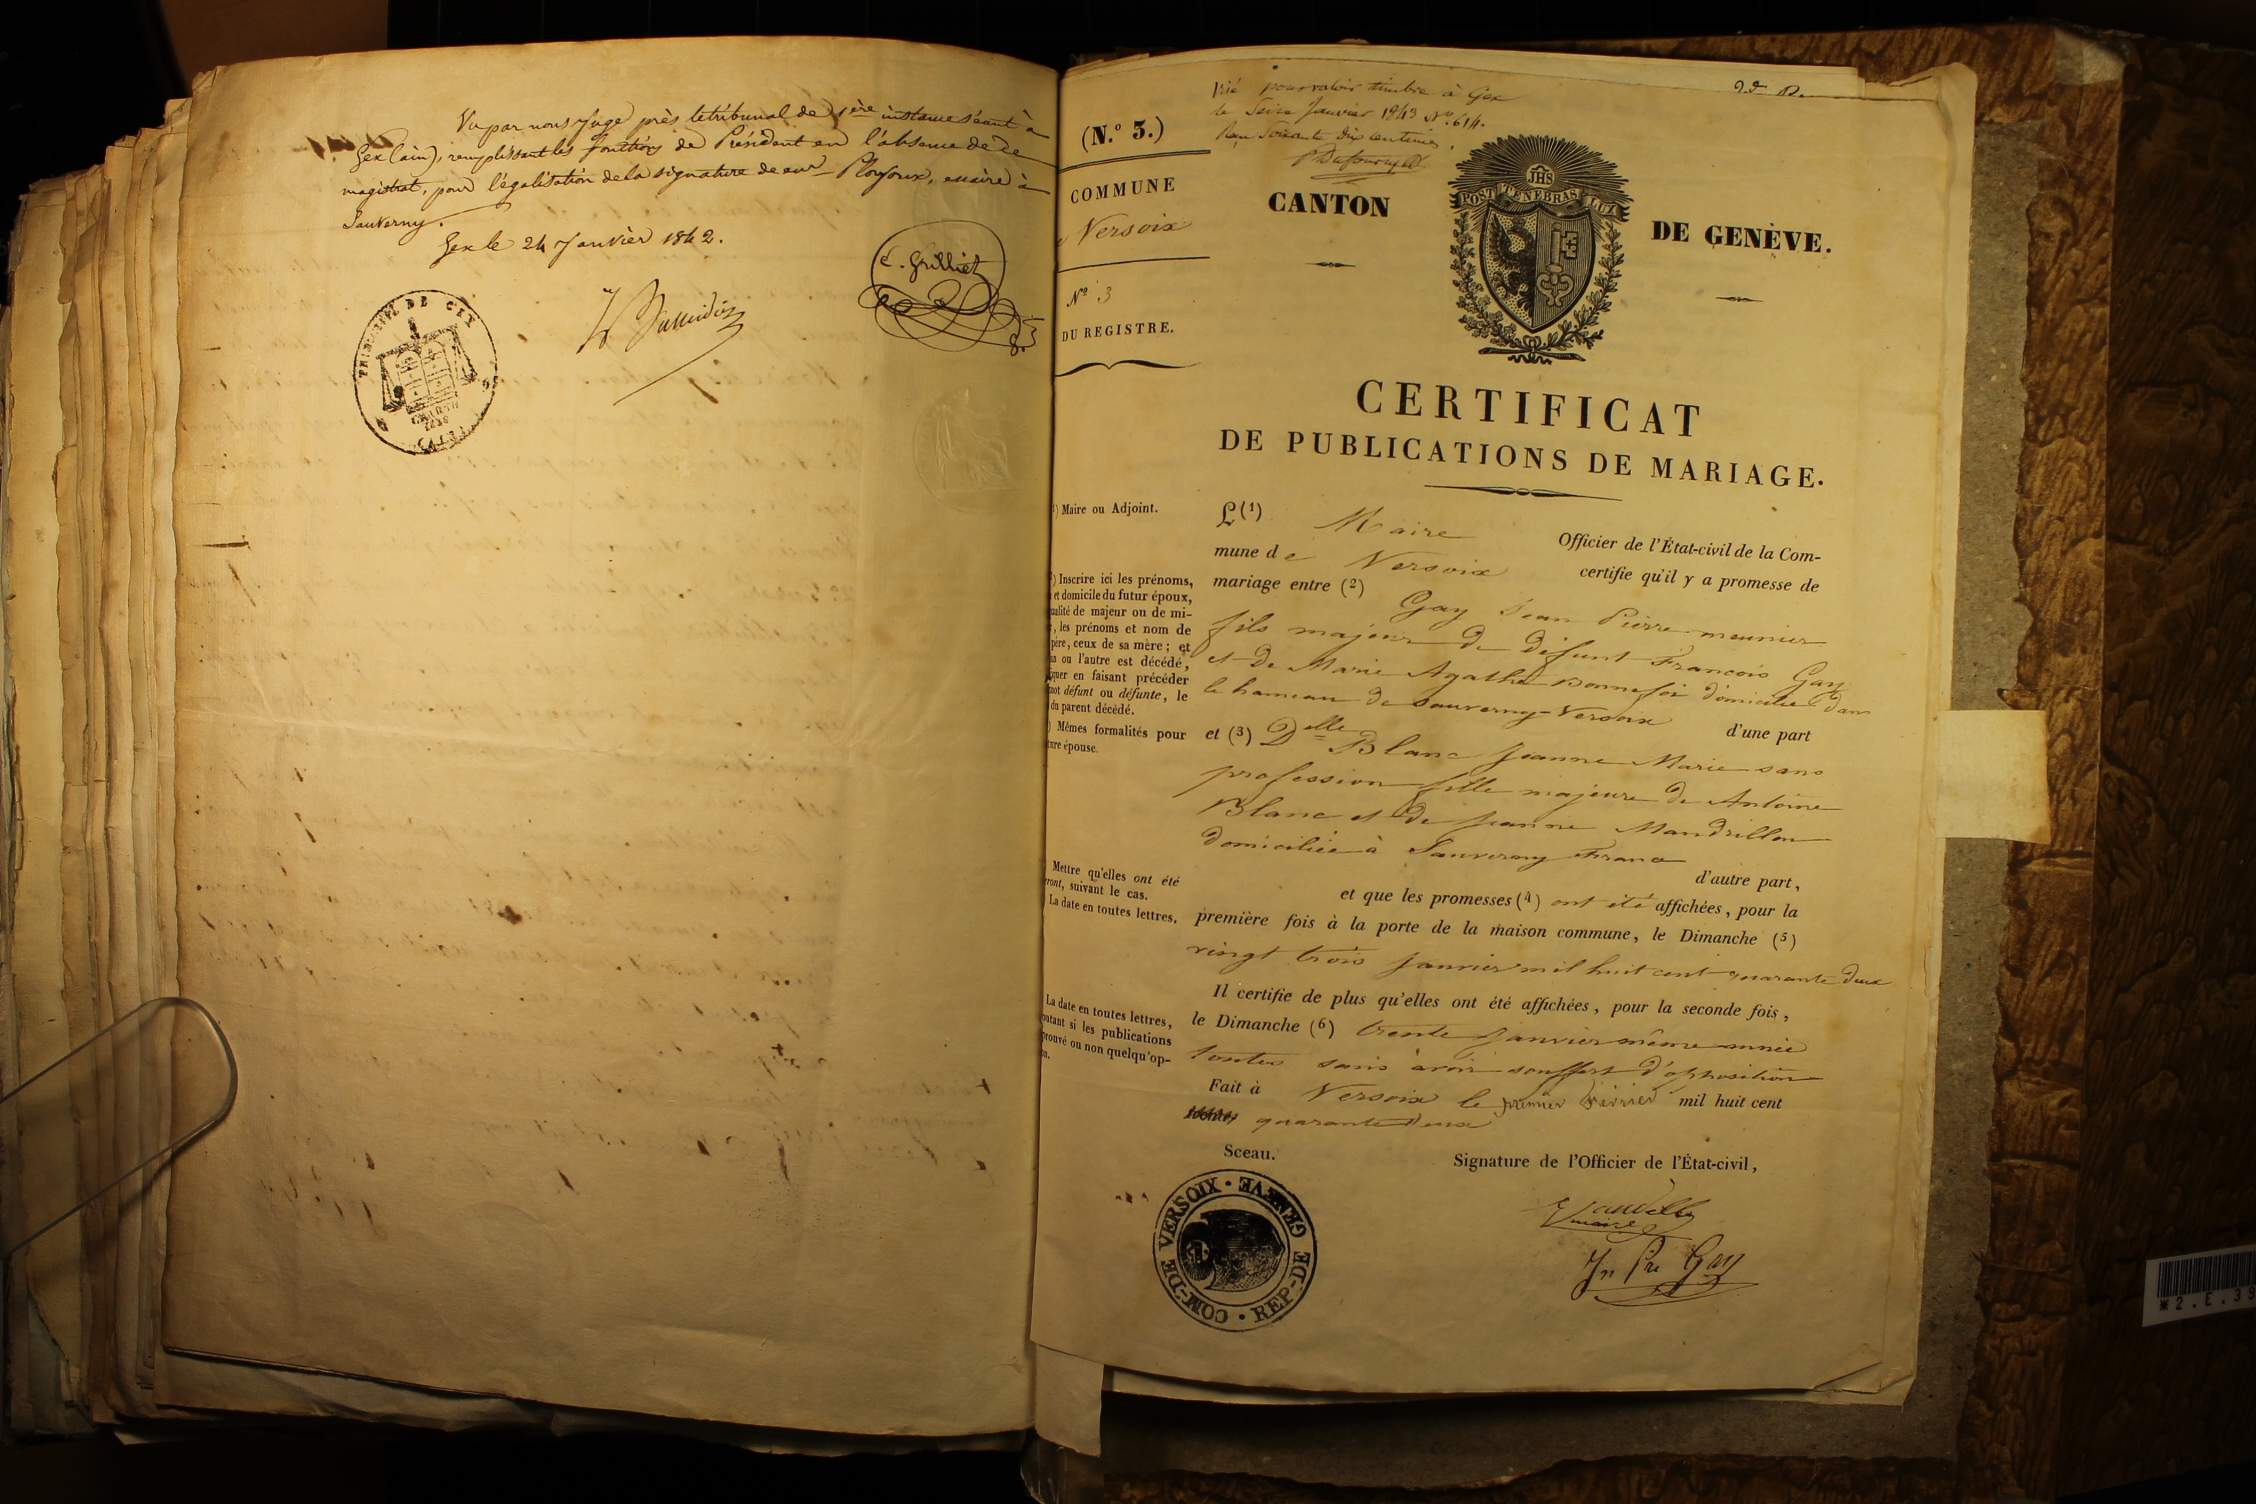 Vu par nous Juge près le tribunal de 1ère instance séant à
Gex (ain), remplissant les fonctions de Président en l'absence de ce
magistrat, pour légalisation de la signature de Mr Ployoux, maire à
Sauverny.
Gex le 24 Janvier 1842.
E. Grilliet
TRIBUNAL DE GEX
Visé pour valoir timbre à Gex
le Seize Janvier 1843 No. 614.
Reçu Soixante dix centimes,
(N.º 3.)
COMMUNE
Versoix
Nº 3
DU REGISTRE.
CANTON
JHS
POST TENEBRAS LUX
DE GENÈVE.
CERTIFICAT
DE PUBLICATIONS DE MARIAGE.
) Maire ou Adjoint.
) Inscrire ici les prénoms,
et domicile du futur époux,
qualité de majeur ou de mi-
, les prénoms et nom de
père, ceux de sa mère; et
ou l'autre est décédé,
en faisant précéder
mot défunt ou défunte, le
du parent décédé.
) Mêmes formalités pour
ture épouse.
Mettre qu'elles ont été
eront, suivant le cas.
La date en toutes lettres.
La date en toutes lettres,
outant si les publications
prouvé ou non quelqu'op-
L(1) Maire Officier de l'État-civil de la Com-
mune de Versoix certifie qu'il y a promesse de
mariage entre (2) Gay Jean Pierre meunier
fils majeur de défunt François Gay
et de Marie Agathe Bonnefoi domicilié dans
le hameau de Sauverny-Versoix d'une part
et (3) Delle Blanc Jeanne Marie sans
profession fille majeure de Antoine
Blanc et de Jeanne Mandrillon
domiciliée à Sauverny France
d'autre part,
et que les promesses (4) ont été affichées, pour la
première fois à la porte de la maison commune, le Dimanche (5)
vingt trois janvier mil huit cent quarante deux
Il certifie de plus qu'elles ont été affichées, pour la seconde fois,
le Dimanche (6) trente janvier même année
toutes sans avoir souffert d'opposition
Fait à Versoix le premier Février mil huit cent
quarante deux
Sceau.
Signature de l'Officier de l'État-civil,
maire
Jn Pre Gay
COM-DE VERSOIX • GENÈVE
REP-DE
*2.E.39